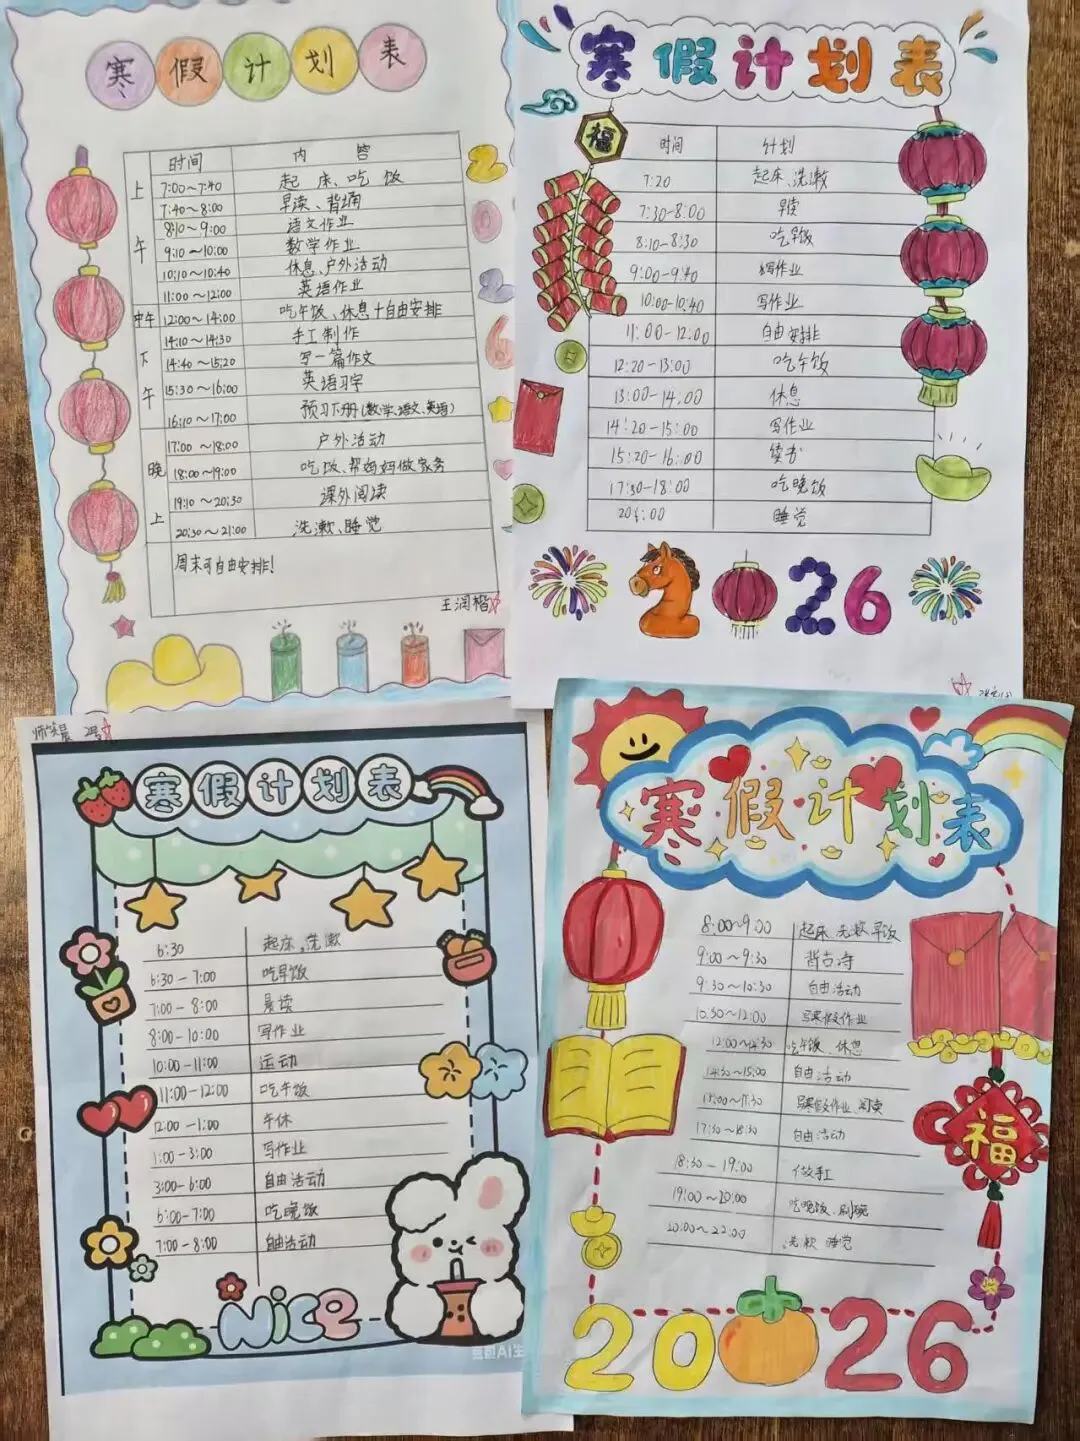 寒假计划表
时间 内容
上午
7:00~7:40 起床、吃饭
7:40~8:00 早读、背诵
8:10~9:00 语文作业
9:10~10:00 数学作业
10:10~10:40 休息、户外活动
11:00~12:00 英语作业
中午 12:00~14:00 吃午饭、休息+自由安排
下午
14:10~14:30 手工制作
14:40~15:20 写一篇作文
15:30~16:00 英语习字
16:10~17:00 预习下册(数学、语文、英语)
晚上
17:00~18:00 户外活动
18:00~19:00 吃饭、帮妈妈做家务
19:10~20:30 课外阅读
20:30~21:00 洗漱、睡觉
周末可自由安排!
2026
寒假计划表
福
时间 计划
7:20 起床、洗漱
7:30-8:00 早读
8:10-8:30 吃早饭
9:00-9:40 写作业
10:00-10:40 写作业
11:00-12:00 自由安排
12:20-13:00 吃午饭
13:00-14:00 休息
14:20-15:00 写作业
15:20-16:00 读书
17:30-18:00 吃晚饭
睡觉
2026
寒假计划表
6:30 起床、洗漱
6:30-7:00 吃早饭
7:00-8:00 晨读
8:00-10:00 写作业
10:00-11:00 运动
11:00-12:00 吃午饭
12:00-1:00 午休
1:00-3:00 写作业
3:00-6:00 自由活动
6:00-7:00 吃晚饭
7:00-8:00 自由活动
Nice
寒假计划表
8:00~9:00 起床 洗漱 早饭
9:00~9:30 背古诗
9:30~10:30 自由活动
10:30~12:00 写寒假作业
12:00~14:30 吃午饭、休息
14:30~15:00 自由活动
15:00~17:30 写寒假作业、阅读
17:30~18:30 自由活动
18:30-19:00 做手工
19:00~20:00 吃晚饭、刷碗
20:00~22:00 洗漱 睡觉
福
2026